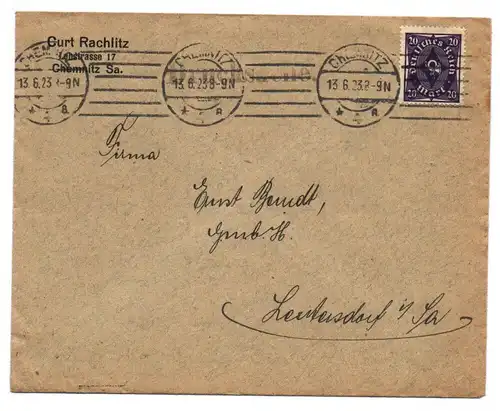 Curt Rachlitz
Lenstrasse 17
Chemnitz Sa.
CHEMNITZ
13.6.23.8-9N
* 1 a
CHEMNITZ
13.6.23.8-9N
* 1 a
CHEMNITZ
13.6.23.8-9N
* 1 a
20 20
Deutsches Reich
Mark
20 20
Firma
Ernst Berndt,
Gmb.H.
Leutersdorf i/Sa